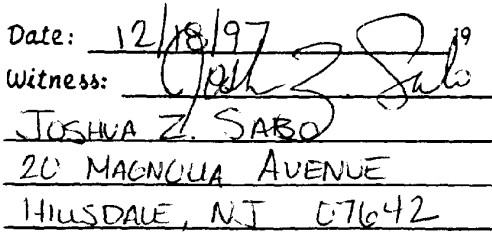 Date: 12/18/97 19
Witness: Josh Z. Sabo
JOSHUA Z. SABO
20 MAGNOLIA AVENUE
HILLSDALE, NJ 07642